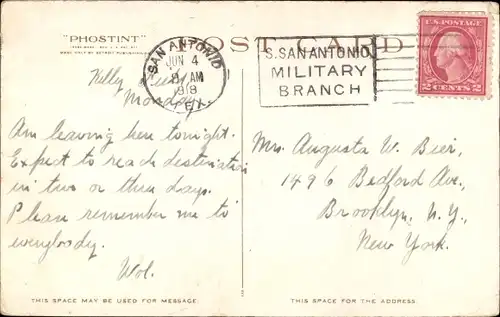 "PHOSTINT"
POST CARD
SAN ANTONIO
JUN 4
AM
1918
TEX
S. SAN ANTONIO
MILITARY
BRANCH
U.S. POSTAGE
2 CENTS 2
Kelly Field
Monday.
Am leaving here tonight.
Expect to reach destination
in two or three days.
Please remember me to
everybody.
Wol.
Mrs. Augusta W. Bier,
1496 Bedford Ave.,
Brooklyn, N.Y.,
New York.
THIS SPACE MAY BE USED FOR MESSAGE.
THIS SPACE IS FOR THE ADDRESS.